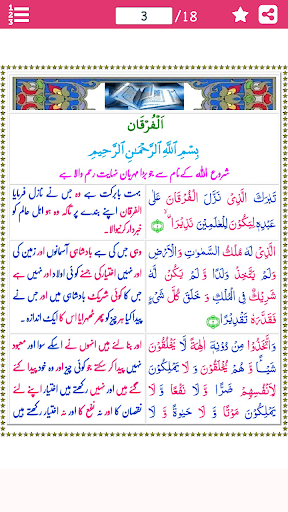 1
2
3
3
/18
اَلْفُرْقَان
بِسْمِ اللّٰهِ الرَّحْمٰنِ الرَّحِيْمِ
شروع اللہ کے نام سے جو بڑا مہربان نہایت رحم والا ہے
تَبٰرَكَ الَّذِیْ نَزَّلَ الْفُرْقَانَ عَلٰی
عَبْدِهٖ لِیَكُوْنَ لِلْعٰلَمِیْنَ نَذِیْرَا ۙ﴿۱﴾
بہت بابرکت ہے وہ جس نے نازل فرمایا
الفرقان اپنے بندے پر تاکہ وہ ہو اہل عالم کو
خبردار کرنیوالا۔
الَّذِیْ لَهٗ مُلْكُ السَّمٰوٰتِ وَالْاَرْضِ
وَلَمْ یَتَّخِذْ وَلَدًا وَّ لَمْ یَكُنْ لَّهٗ
شَرِیْكٌ فِی الْمُلْكِ وَ خَلَقَ كُلَّ شَیْءٍ
فَقَدَّرَهٗ تَقْدِیْرًا ﴿۲﴾
وہی جس کی ہے بادشاہی آسمانوں اور زمین کی
اور نہیں اختیار کی جسنے کوئی اولاد اور نہیں ہے
جس کا کوئی شریک بادشاہی میں اور جس نے
پیدا کیا ہر چیز کو پھر ٹھہرایا اس کا ایک اندازہ۔
وَاتَّخَذُوْا مِنْ دُوْنِهٖۤ اٰلِهَةً لَّا یَخْلُقُوْنَ
شَیْـًٔا وَّ هُمْ یُخْلَقُوْنَ وَ لَا یَمْلِكُوْنَ
لِاَنْفُسِهِمْ ضَرًّا وَّ لَا نَفْعًا وَّ لَا
یَمْلِكُوْنَ مَوْتًا وَّ لَا حَیٰوةً وَّ لَا
اور بنا لئے ہیں انہوں نے اسکے سوا اور معبود
نہیں پیدا کر سکتے جو کوئی چیز اور وہ خود پیدا کئے
گئے ہیں اور نہیں رکھتے ہیں اختیار اپنے لئے
نقصان کا اور نہ نفع کا اور نہ اختیار رکھتے ہیں